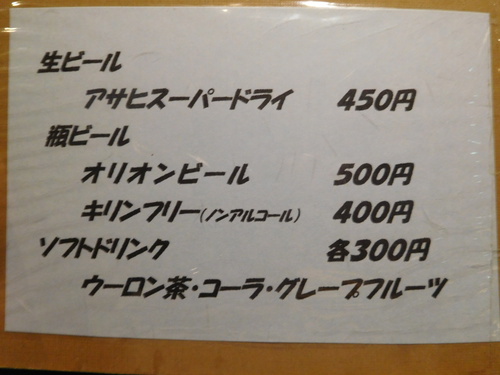 生ビール
アサヒスーパードライ 450円
瓶ビール
オリオンビール 500円
キリンフリー(ノンアルコール) 400円
ソフトドリンク 各300円
ウーロン茶・コーラ・グレープフルーツ